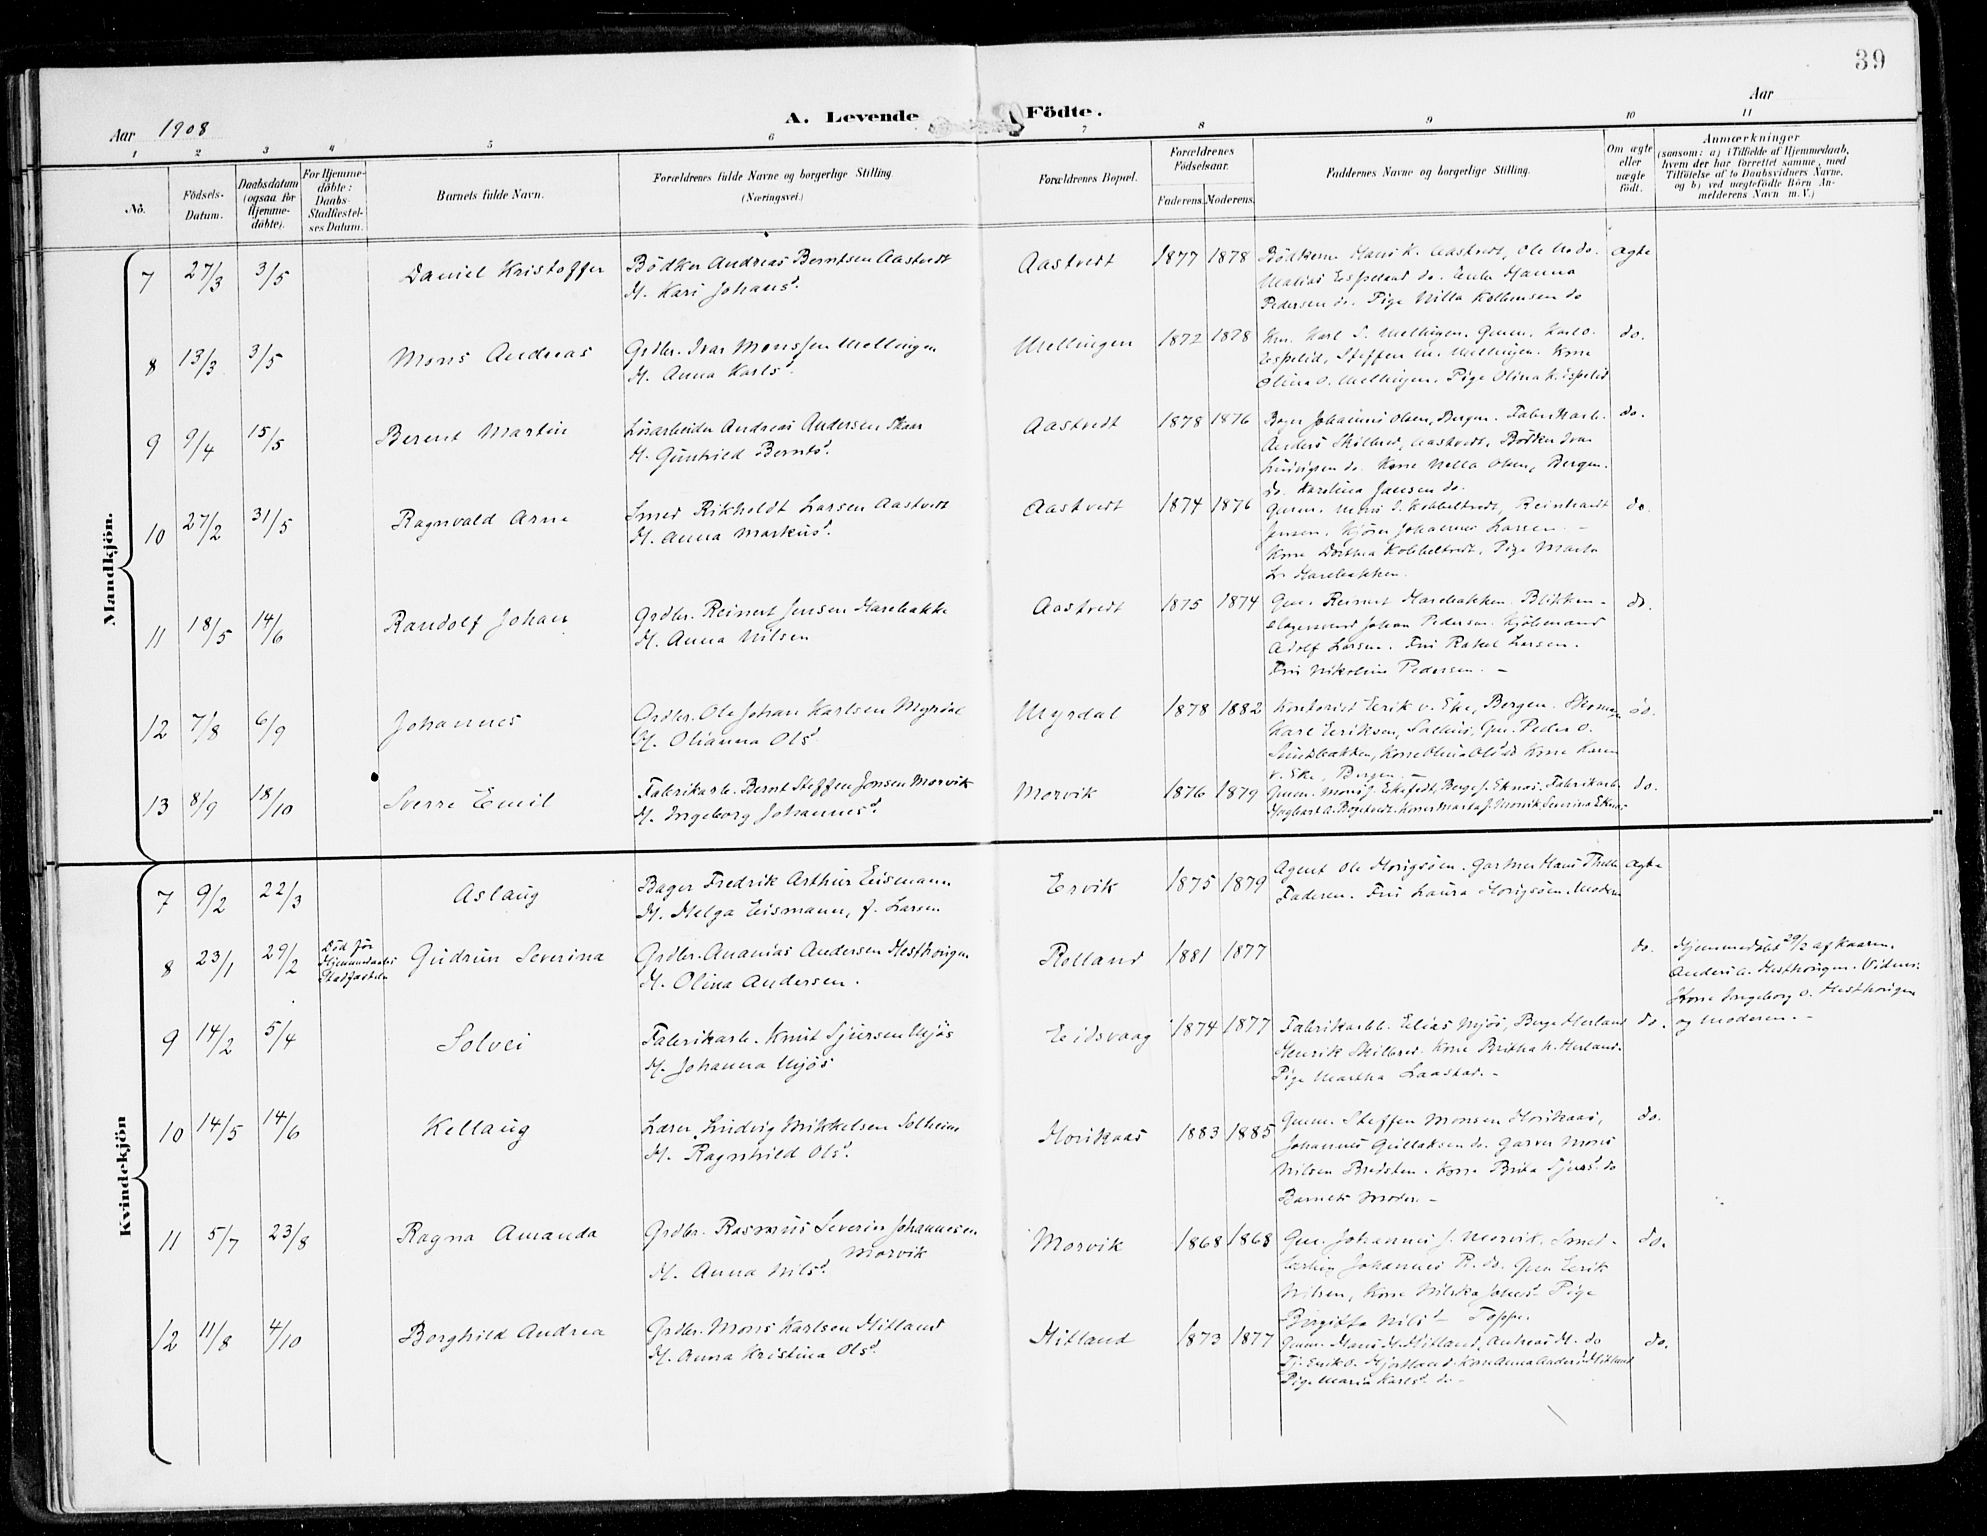 39
Aar 1908
A. Levende Födte.
Aar
1 2 3 4 5 6 7 8 9 10 11
No.
Födsels-Datum.
Daabsdatum (ogsaa for Hjemmedöbte).
For Hjemmedöbte: Daabs-Stadfæstelses Datum.
Barnets fulde Navn.
Forældrenes fulde Navne og borgerlige Stilling. (Næringsvei.)
Forældrenes Bopæl.
Forældrenes Födselsaar.
Faderens. Moderens.
Faddernes Navne og borgerlige Stilling.
Om ægte eller uægte födt.
Anmærkninger (saasom: a) i Tilfælde af Hjemmedaab, hvem der har forrettet samme, med Tilföielse af to Daabsvidners Navne, og b) ved uægtefödte Börn Anmelderens Navn m. V.)
Mandkjön.
7 27/3 3/5 Daniel Kristoffer
Bödker Andreas Berntsen Aastvedt
H. Kari Johansd.
Aastvedt 1877 1878
Bödkerne Hans K. Aastvedt, Ole do.
Matias Espeland do. Enke Hanna
Pedersen do. Pige Nilla Kolbensen do
ægte
8 13/3 3/5 Mons Andreas
Grdbr. Ivar Monssen Mellingen
H. Anna Karlsd.
Mellingen 1872 1878
Km. Karl S. Mellingen. Gmm. Karl O.
Espelid, Steffen M. Mellingen. Kone
Olina O. Mellingen. Pige Olina K. Espelid
do.
9 9/4 15/5 Berent Martin
Lösarbeider Andreas Andersen Skaar
H. Gunhild Berntsd.
Aastvedt 1878 1876
Bager Johannes Olsen, Bergen. Fabrikarb.
Anders Skilbred, Aastvedt. Bödker Ivar
Ludvigsen do. Kone Nella Olsen, Bergen.
do. Karolina Jansen do.
do.
10 27/2 31/5 Ragnvald Arne
Smed Rikholdt Larsen Aastvedt
H. Anna Markusd.
Aastvedt 1874 1876
Gmm. Mons S. Kobbeltvedt, Reinhardt
Jensen, Johannes Larsen. –
Kone Dorthea Kobbeltvedt. Pige Marta
L. Harebakken.
do.
11 18/5 14/6 Randolf Johan
Grdbr. Reinert Jensen Harebakke
H. Anna Nilsen
Aastvedt 1875 1874
Gm. Reinert Harebakken. Blikken-
slagersvend Johan Pedersen. Kjöbmand
Adolf Larsen. Fru Rakel Larsen.
Fru Nikoline Pedersen. –
do.
12 7/8 6/9 Johannes
Grdbr. Ole Johan Karlsen Myrdal
H. Olianna Olsd.
Myrdal 1878 1882
Kontorist Eirik v. Eke, Bergen.
Karl Eriksen, Salhus, Gm. Peder O.
Kone Karen
v. Eke, Bergen. –
do.
13 8/9 18/10 Sverre Emil
Fabrikarb. Bernt Steffen Jonsen Morvik
H. Ingeborg Johannesd.
Morvik 1876 1879
Gmm. Mons J. Berge J. Eknæs, Fabrikarb.
Kone Marta J. Morvik, Severina Eknæs
do.
Kvindekjön
7 9/2 22/3 Aslaug
Bager Fredrik Arthur Eismann
H. Helga Eismann, f. Larsen
Ervik 1875 1879
Agent Ole Horigsöen. Gartner Hans
Faderen. Fru Laura Horigsöen. Moderen
ægte
8 23/1 29/2
Död før
Hjemmedaabs
Stadfæstelse
Gudrun Severina
Grdbr. Ananias Andersen Hesthougen
H. Olina Andersen.
Rolland 1881 1877
do.
Hjemmedöbt 29/2 af Kaarm.
Anders A. Hesthougen. Vidner:
Kone Ingeborg O. Hesthougen
og Moderen. –
9 14/2 5/4 Solvei
Fabrikarb. Knut Sjursen Mjös
H. Johanna Mjös
Eidsvaag 1874 1877
Fabrikarbb. Elias Mjös, Berge Herland
Henrik Skilbred. Kone Britha H. Herland.
Pige Martha Laastad. –
do.
10 14/5 14/6 Kellaug
Lærer Ludvig Mikkelsen Solheim
H. Ragnhild Olsd.
Horikaas 1883 1885
Gmm. Steffen Monsen Horikaas,
Johannes Gullaksen do. Garver Mons
Nilsen Bredsten. Kone Brita Sjursd. do
Barnets Moder. –
do.
11 5/7 23/8 Ragna Amanda
Grdbr. Rasmus Severin Johannesen
Morvik
H. Anna Nilsd.
Morvik 1868 1868
Gm. Johannes J. Morvik. Smed-
Johannes R. do. Gm Eirik
Nilsen, Kone Pige
Birgitta Nilsd. Toppe.
do.
12 11/8 4/10 Borghild Andrea
Grdbr. Mons Karlsen Hitland
H. Anna Kristina Olsd.
Hitland 1873 1877
Gmm. Hans H. Hitland, Andreas H. do
Tj. Erik O. Hjortland. Kone Anna Andersd. Hitland
Pige Maria Karlsd. do –
do.